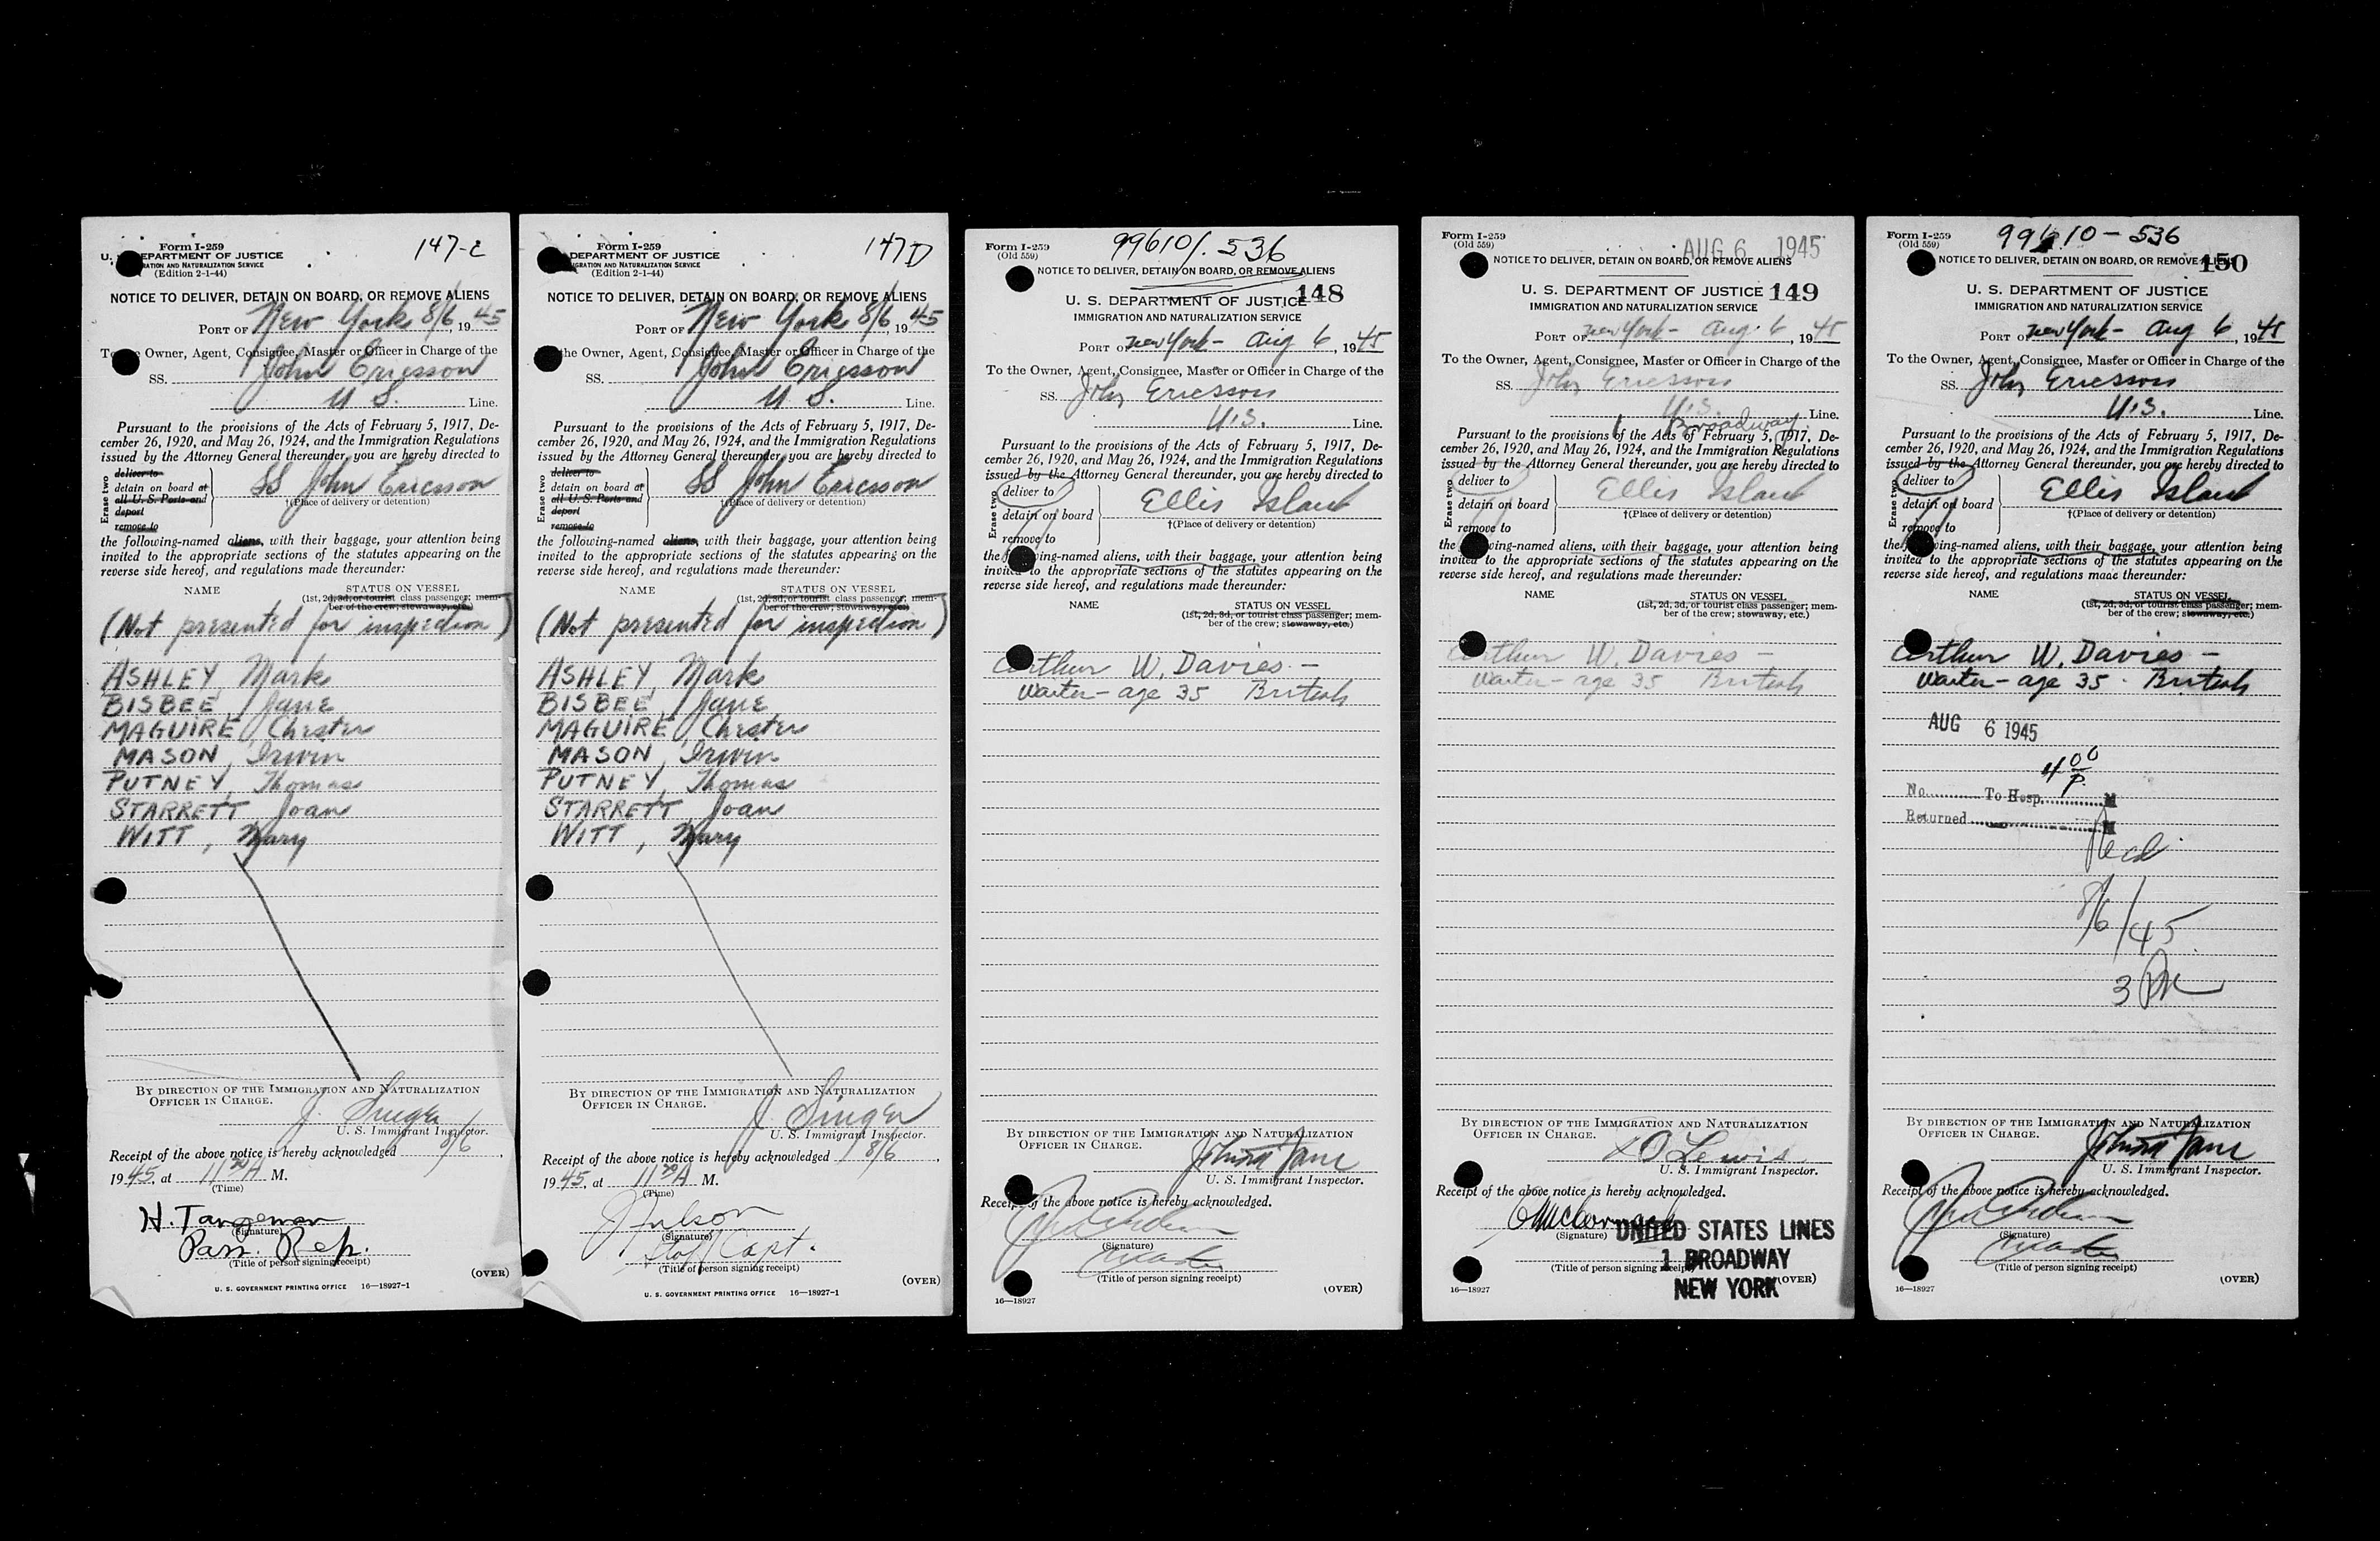 Form I-259
147-c
U. S. DEPARTMENT OF JUSTICE
IMMIGRATION AND NATURALIZATION SERVICE
(Edition 2-1-44)
NOTICE TO DELIVER, DETAIN ON BOARD, OR REMOVE ALIENS
PORT OF New York 8/6, 1945
To the Owner, Agent, Consignee, Master or Officer in Charge of the
SS. John Ericsson
U S. Line.
Pursuant to the provisions of the Acts of February 5, 1917, De-
cember 26, 1920, and May 26, 1924, and the Immigration Regulations
issued by the Attorney General thereunder, you are hereby directed to
Erase two
deliver to
detain on board at
all U. S. Ports and
deport
remove to
SS John Ericsson
†(Place of delivery or detention)
the following-named aliens, with their baggage, your attention being
invited to the appropriate sections of the statutes appearing on the
reverse side hereof, and regulations made thereunder:
NAME STATUS ON VESSEL
(1st, 2d, 3d, or tourist class passenger; mem-
ber of the crew; stowaway, etc.)
(Not presented for inspection)
ASHLEY, Mark
BISBEE, Jane
MAGUIRE, Chester
MASON, Irwin
PUTNEY, Thomas
STARRETT Joan
WITT, Mary
BY DIRECTION OF THE IMMIGRATION AND NATURALIZATION
OFFICER IN CHARGE.
J. Singer
U. S. Immigrant Inspector.
Receipt of the above notice is hereby acknowledged 8/6,
1945, at 11 30 A M.
(Time)
H. Tangeman
(Signature)
Pass. Rep.
(Title of person signing receipt)
(OVER)
U. S. GOVERNMENT PRINTING OFFICE 16—18927-1
Form I-259
147D
U. S. DEPARTMENT OF JUSTICE
IMMIGRATION AND NATURALIZATION SERVICE
(Edition 2-1-44)
NOTICE TO DELIVER, DETAIN ON BOARD, OR REMOVE ALIENS
PORT OF New York 8/6, 1945
To the Owner, Agent, Consignee, Master or Officer in Charge of the
SS. John Ericsson
U S. Line.
Pursuant to the provisions of the Acts of February 5, 1917, De-
cember 26, 1920, and May 26, 1924, and the Immigration Regulations
issued by the Attorney General thereunder, you are hereby directed to
Erase two
deliver to
detain on board at
all U. S. Ports and
deport
remove to
SS John Ericsson
†(Place of delivery or detention)
the following-named aliens, with their baggage, your attention being
invited to the appropriate sections of the statutes appearing on the
reverse side hereof, and regulations made thereunder:
NAME STATUS ON VESSEL
(1st, 2d, 3d, or tourist class passenger; mem-
ber of the crew; stowaway, etc.)
(Not presented for inspection)
ASHLEY, Mark
BISBEE, Jane
MAGUIRE, Chester
MASON, Irwin
PUTNEY, Thomas
STARRETT Joan
WITT, Mary
BY DIRECTION OF THE IMMIGRATION AND NATURALIZATION
OFFICER IN CHARGE.
J. Singer
U. S. Immigrant Inspector.
Receipt of the above notice is hereby acknowledged 8/6,
1945, at 11 30 A M.
(Time)
(Signature)
Staff Capt.
(Title of person signing receipt)
(OVER)
U. S. GOVERNMENT PRINTING OFFICE 16—18927-1
Form I-259
(Old 559)
99610/.536
NOTICE TO DELIVER, DETAIN ON BOARD, OR REMOVE ALIENS
U. S. DEPARTMENT OF JUSTICE 148
IMMIGRATION AND NATURALIZATION SERVICE
PORT OF New York - Aug 6, 1945
To the Owner, Agent, Consignee, Master or Officer in Charge of the
SS. John Ericsson
U.S. Line.
Pursuant to the provisions of the Acts of February 5, 1917, De-
cember 26, 1920, and May 26, 1924, and the Immigration Regulations
issued by the Attorney General thereunder, you are hereby directed to
Erase two
deliver to
detain on board
remove to
Ellis Island
†(Place of delivery or detention)
the following-named aliens, with their baggage, your attention being
invited to the appropriate sections of the statutes appearing on the
reverse side hereof, and regulations made thereunder:
NAME STATUS ON VESSEL
(1st, 2d, 3d, or tourist class passenger; mem-
ber of the crew; stowaway, etc.)
Arthur W. Davies -
Waiter - age 35 British
BY DIRECTION OF THE IMMIGRATION AND NATURALIZATION
OFFICER IN CHARGE.
U. S. Immigrant Inspector.
Receipt of the above notice is hereby acknowledged.
(Signature)
Master
(Title of person signing receipt)
16—18927 (OVER)
Form I-259
(Old 559)
AUG 6 1945
NOTICE TO DELIVER, DETAIN ON BOARD, OR REMOVE ALIENS
U. S. DEPARTMENT OF JUSTICE 149
IMMIGRATION AND NATURALIZATION SERVICE
PORT OF New York - Aug. 6, 1945
To the Owner, Agent, Consignee, Master or Officer in Charge of the
SS. John Ericsson
U.S. Line.
1 Broadway
Pursuant to the provisions of the Acts of February 5, 1917, De-
cember 26, 1920, and May 26, 1924, and the Immigration Regulations
issued by the Attorney General thereunder, you are hereby directed to
Erase two
deliver to
detain on board
remove to
Ellis Island
†(Place of delivery or detention)
the following-named aliens, with their baggage, your attention being
invited to the appropriate sections of the statutes appearing on the
reverse side hereof, and regulations made thereunder:
NAME STATUS ON VESSEL
(1st, 2d, 3d, or tourist class passenger; mem-
ber of the crew; stowaway, etc.)
Arthur W. Davies -
Waiter - age 35 British
BY DIRECTION OF THE IMMIGRATION AND NATURALIZATION
OFFICER IN CHARGE.
Lewis
U. S. Immigrant Inspector.
Receipt of the above notice is hereby acknowledged.
(Signature)
UNITED STATES LINES
1 BROADWAY
NEW YORK
(Title of person signing receipt)
16—18927 (OVER)
Form I-259
(Old 559)
99610-536
NOTICE TO DELIVER, DETAIN ON BOARD, OR REMOVE ALIENS
150
U. S. DEPARTMENT OF JUSTICE
IMMIGRATION AND NATURALIZATION SERVICE
PORT OF New York - Aug 6, 1945
To the Owner, Agent, Consignee, Master or Officer in Charge of the
SS. John Ericsson
U.S. Line.
Pursuant to the provisions of the Acts of February 5, 1917, De-
cember 26, 1920, and May 26, 1924, and the Immigration Regulations
issued by the Attorney General thereunder, you are hereby directed to
Erase two
deliver to
detain on board
remove to
Ellis Island
†(Place of delivery or detention)
the following-named aliens, with their baggage, your attention being
invited to the appropriate sections of the statutes appearing on the
reverse side hereof, and regulations made thereunder:
NAME STATUS ON VESSEL
(1st, 2d, 3d, or tourist class passenger; mem-
ber of the crew; stowaway, etc.)
Arthur W. Davies -
Waiter - age 35 - British
AUG 6 1945
4 00 P.
No. To Hosp. M
Returned M
Recd
8/6/45
3 PM
BY DIRECTION OF THE IMMIGRATION AND NATURALIZATION
OFFICER IN CHARGE.
U. S. Immigrant Inspector.
Receipt of the above notice is hereby acknowledged.
(Signature)
Master
(Title of person signing receipt)
(OVER)
16—18927